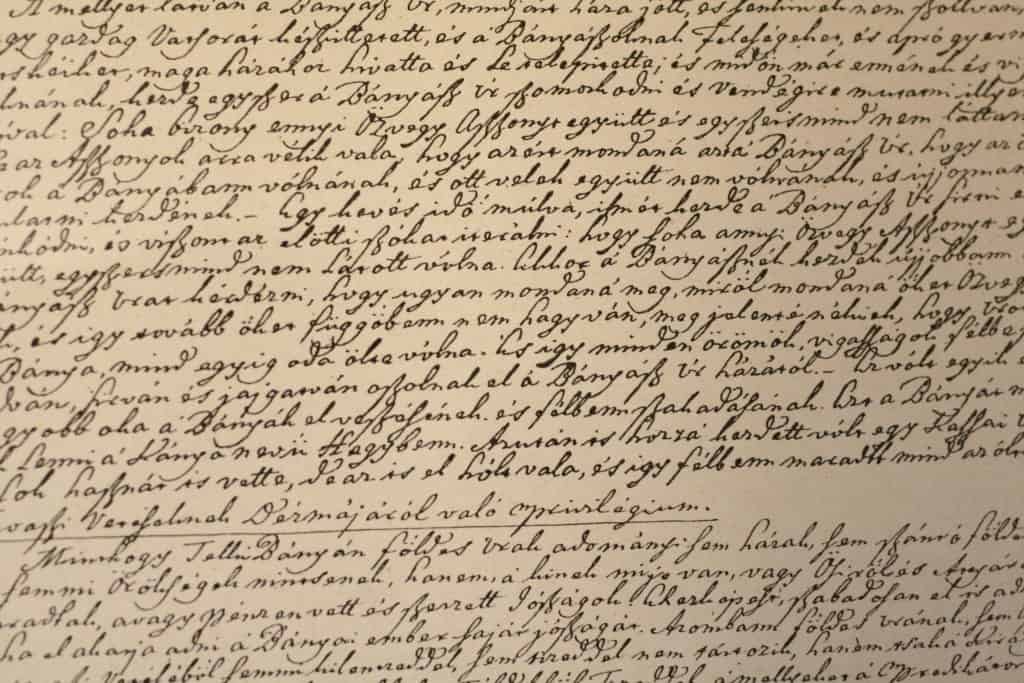 A mellyet látván a Bányász Úr, mindjárt haza jött, és senkinek nem szóltván,
egy gazdag Vatsorát készíttetett, és a Bányászoknak Feleségeket, és apró gyerm
maga házához hivatta és le telepitette; és midön már ennének és
innának, kezde egyszer á Bányász Úr szomorkodni és vendégire mutatni illyen
val: Soha bizony ennyi Özvegy Aszszonyt együtt és egyszersmind nem láttam
az Aszszonyok arra vélik vala, hogy azért mondaná azt á Bányász Úr, hogy az
ok á Bányábann vólnának, és ött velek együtt nem vólnának, és újjonnan
mulatni kezdének. – Egy kevés idő múlva, ismét kezde á Bányász Úr sirni
és viszont az elötti szókat iterálni: hogy soha annyi Özvegy Aszszonyt
egyszersmind nem látott vólna. Ekkor á Bányásznék kezdék újjobbann
Bányász Urat kérdezni, hogy ugyan mondaná meg, miröl mondaná öket Özvegy
és igy tovább öket függöbenn nem hagyván, meg jelenté nékiek, hogy
Bánya, mind egyig oda ölte vólna. És igy minden örömök, vigasságok félbe
sirván és jajgatván oszolnak el á Bányász Úr házától. – Ez vólt egyik
nagyobb oka a Bányák el veszésének és félbenn szakadásának. Ezt a Bányát
Lenni á Kánya nevü Hegybenn. Azután is hozzá kezdett vólt egy Kassai
hasznát is vette, de az is el hólt vala, és igy félbenn maradtt mind az
való privilégium.
Minthogy Telki Bányán földes Urak adományi sem házak, sem szántó földe
semmi Örökségek nintsenek, hanem, á kinek mije van, vagy Ösiröl és Atyáró
maradtak, avagy pénzen vett és szerzett Jószágok: Ekképest, szabadosan el is ad
ha el akarja adni á Bányai ember saját jószágát. Azombann földes Urának, sem
sem kilentzeddel, sem tizeddel nem tartozik, hanem tsak á